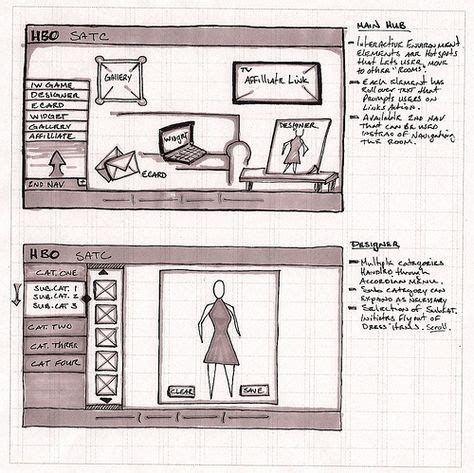 HBO SATC
GALLERY
TV
AFFILIATE LINK
IW GAME
DESIGNER
ECARD
WIDGET
GALLERY
AFFILLIATE
2ND NAV
WIDGET
DESIGNER
ECARD
MAIN HUB
- INTERACTIVE ENVIRONMENT
ELEMENTS ARE HOTSPOTS
THAT LETS USER MOVE
TO OTHER "ROOMS".
- EACH ELEMENT HAS
ROLLOVER TEXT THAT
PROMPTS USERS ON
LINKS ACTION.
- AVAILABLE 2ND NAV
THAT CAN BE USED
INSTEAD OF NAVIGATING
THE ROOM.
HBO SATC
CAT. ONE
SUB.CAT. 1
SUB.CAT. 2
SUB.CAT 3
CAT. TWO
CAT. THREE
CAT FOUR
CLEAR
SAVE
DESIGNER
- MULTIPLE CATEGORIES
HANDLED THROUGH
ACCORDIAN MENU.
- SUB CATEGORY CAN
EXPAND AS NECESSARY
- SELECTION OF SUBCAT.
INITIATES FLY OUT OF
DRESS ITEMS. SCROLL.